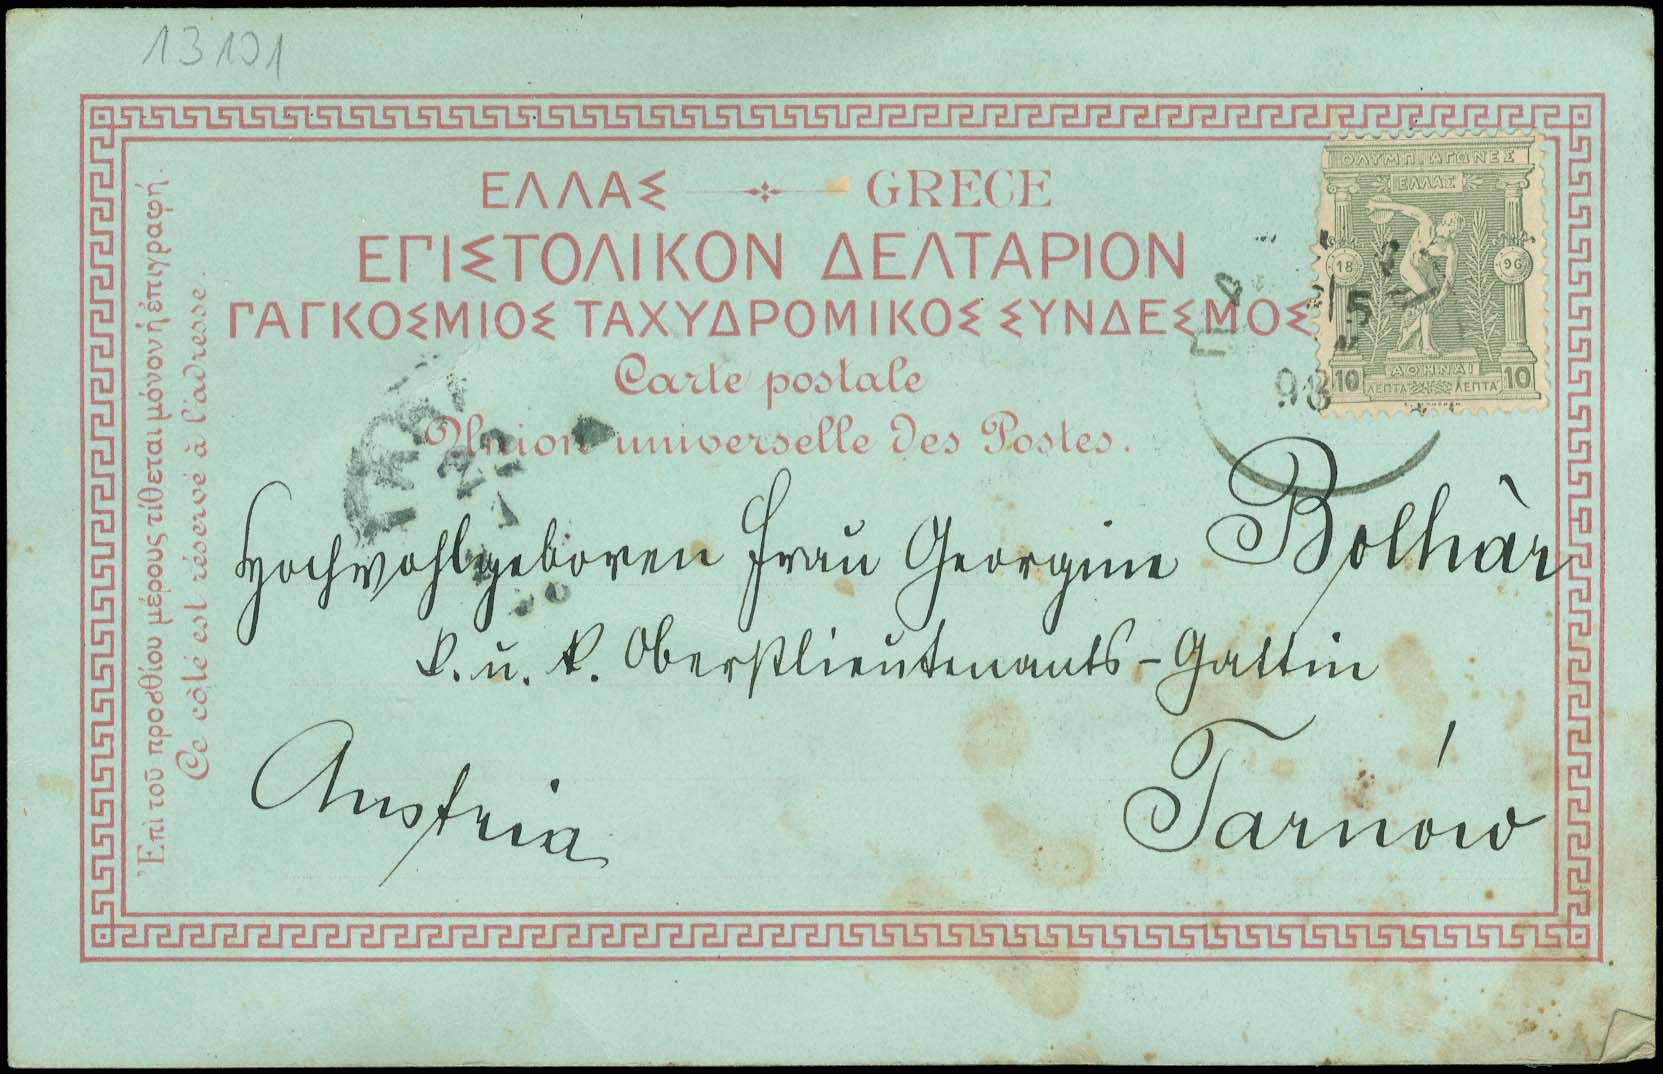 13101
ΕΛΛΑΣ GRECE
ΕΠΙΣΤΟΛΙΚΟΝ ΔΕΛΤΑΡΙΟΝ
ΠΑΓΚΟΣΜΙΟΣ ΤΑΧΥΔΡΟΜΙΚΟΣ ΣΥΝΔΕΣΜΟΣ
Carte postale
Union universelle des Postes.
Ἐπὶ τοῦ προσθίου μέρους τίθεται μόνον ἡ ἐπιγραφή.
Ce côté est réservé à l'adresse.
ΟΛΥΜΠ. ΑΓΩΝΕΣ
ΕΛΛΑΣ
18 96
ΑΘΗΝΑΙ
10 ΛΕΠΤΑ ΛΕΠΤΑ 10
5
98
Hochwohlgeboren Frau Georgine Bolhàr
k. u. k. Oberstlieutenants-Gattin
Austria Tarnów